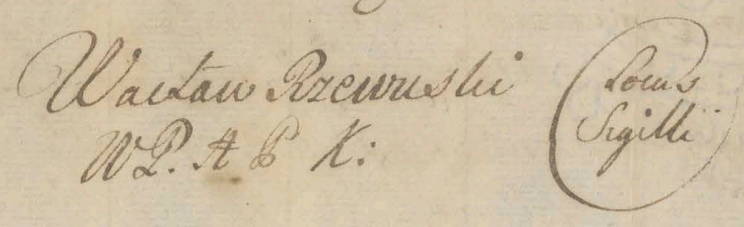 Wacław Rzewuski
WP. A P K:
Locus
Sigilli